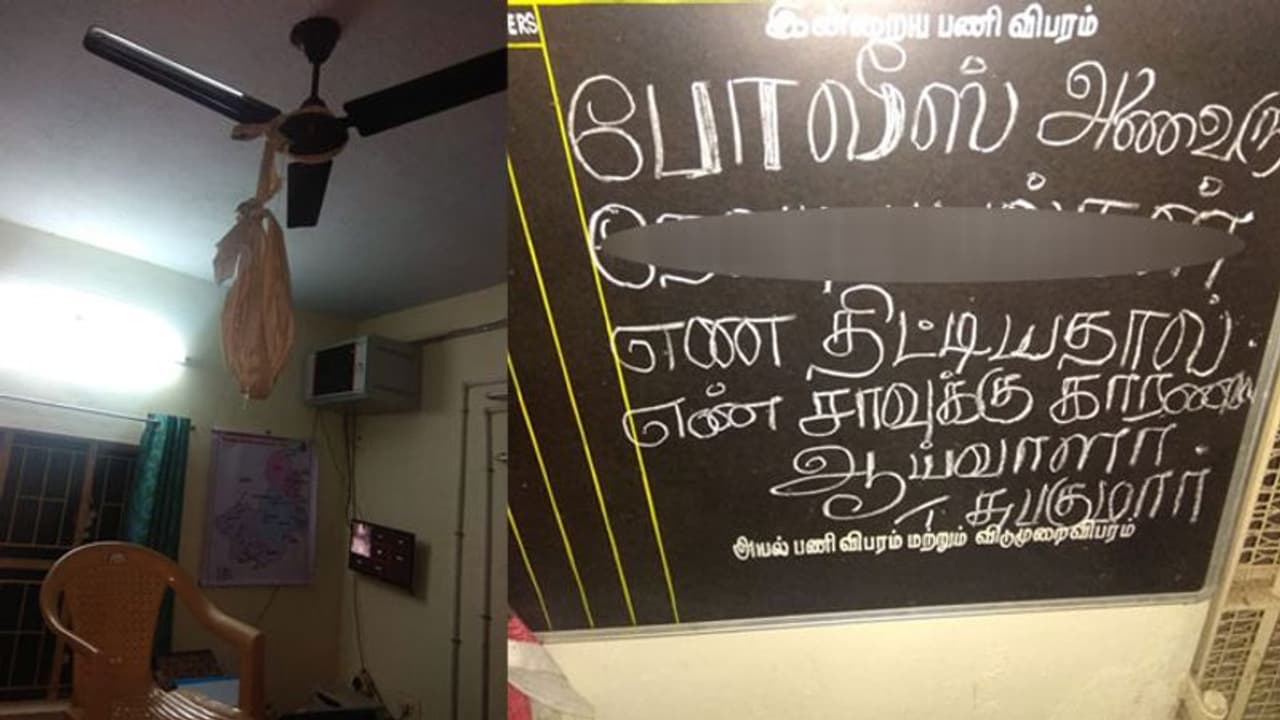 ERS
இன்றைய பணி விபரம்
போலீஸ் அணைவரு
என திட்டியதால்.
என் சாவுக்கு காரணம்
ஆய்வாளர்.
சுபகுமார்
அயல் பணி விபரம் மற்றும் விடுமுறை விபரம்